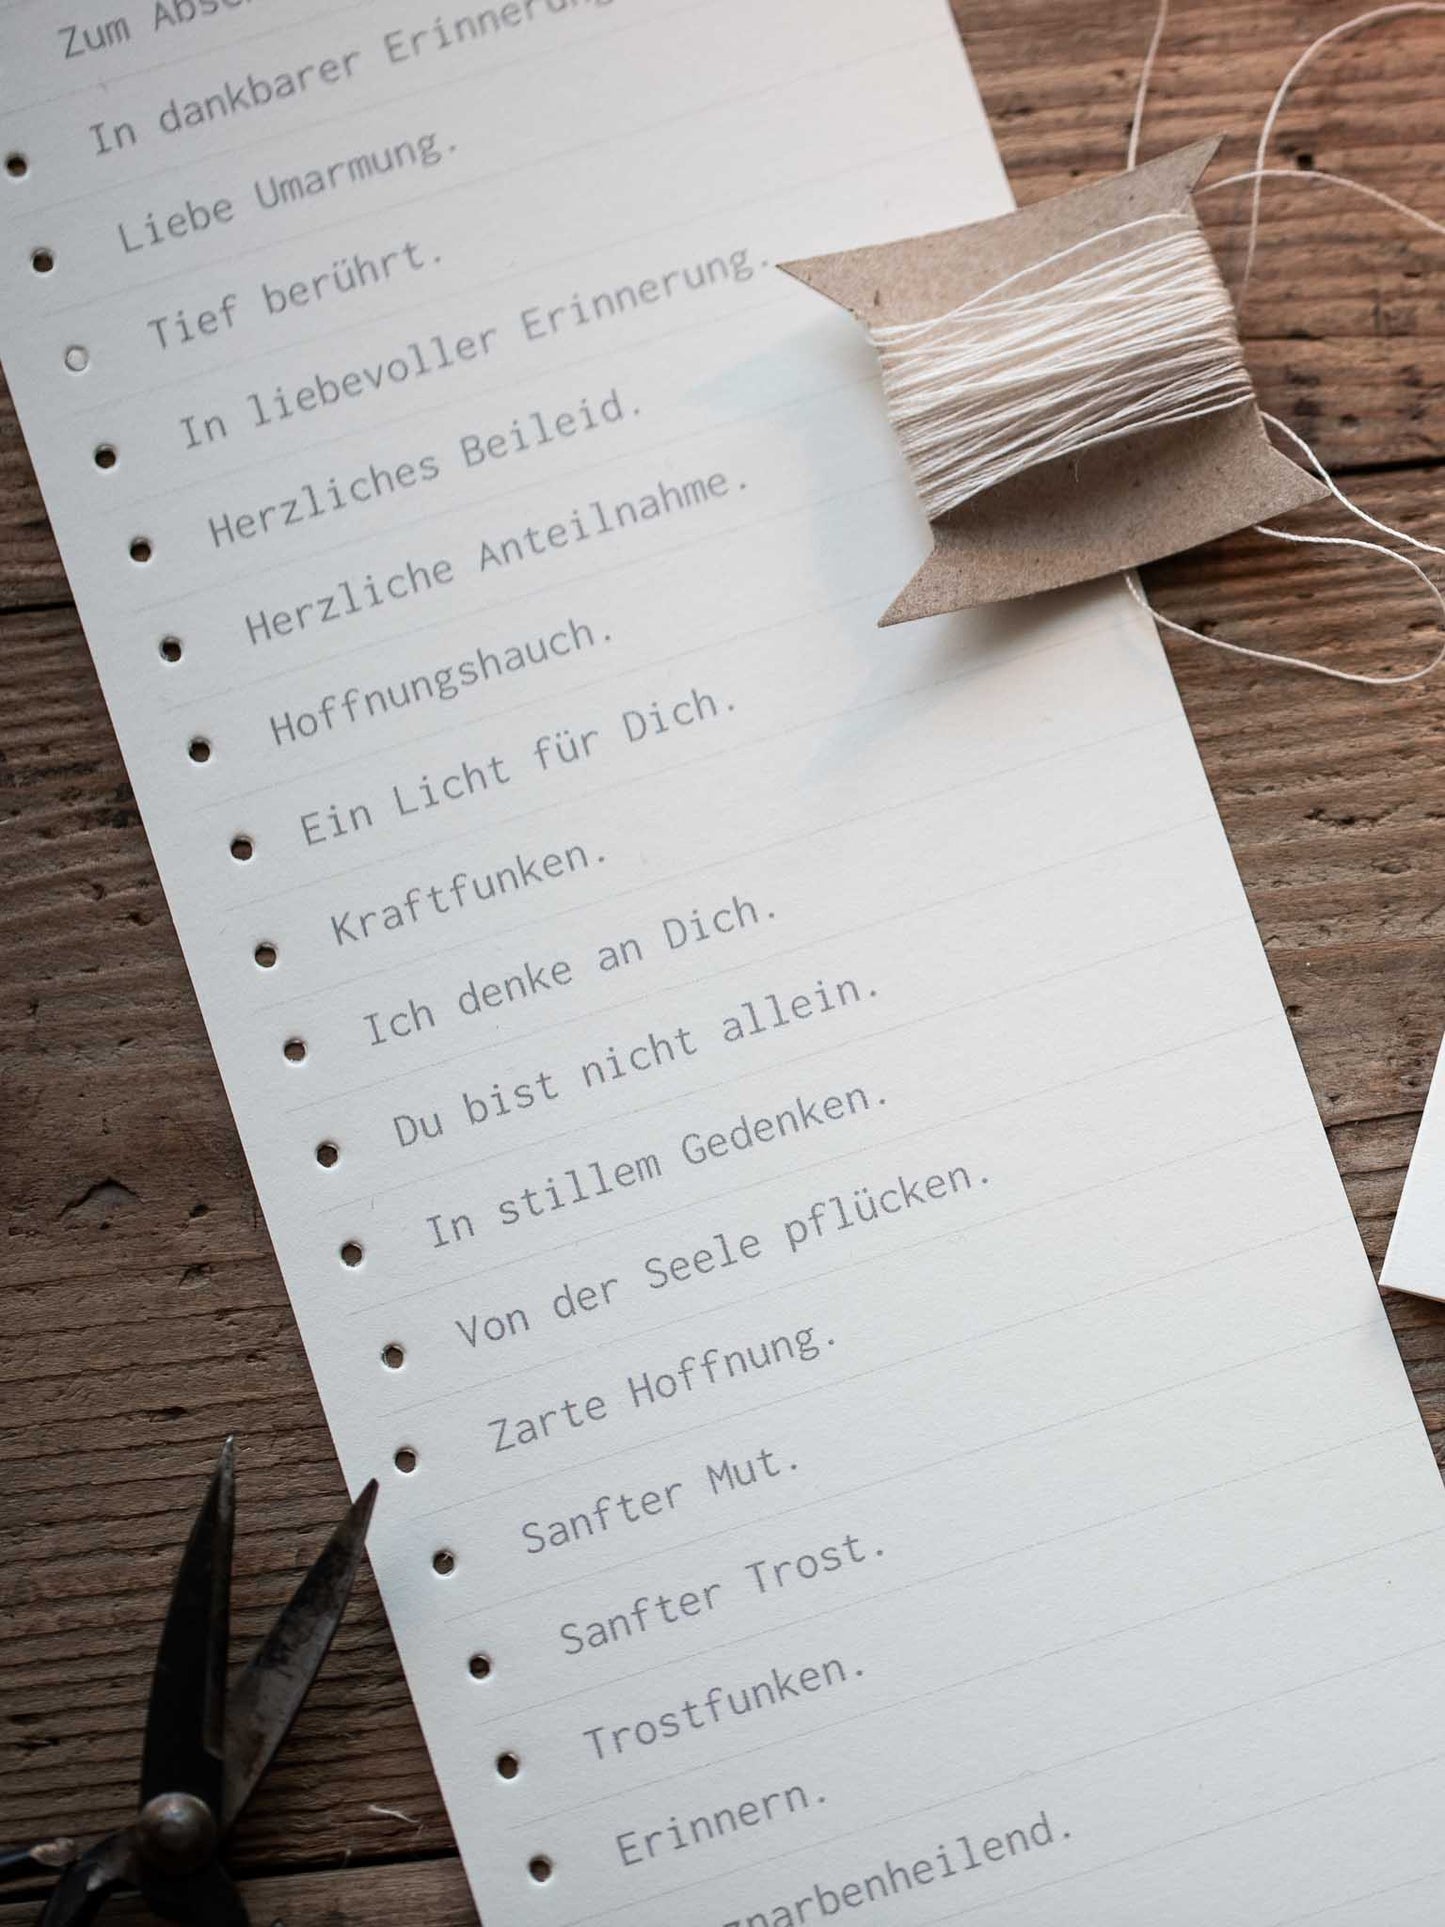 Zum
In dankbarer Erinnerung
Liebe Umarmung.
Tief berührt.
In liebevoller Erinnerung.
Herzliches Beileid.
Herzliche Anteilnahme.
Hoffnungshauch.
Ein Licht für Dich.
Kraftfunken.
Ich denke an Dich.
Du bist nicht allein.
In stillem Gedenken.
Von der Seele pflücken.
Zarte Hoffnung.
Sanfter Mut.
Sanfter Trost.
Trostfunken.
Erinnern.